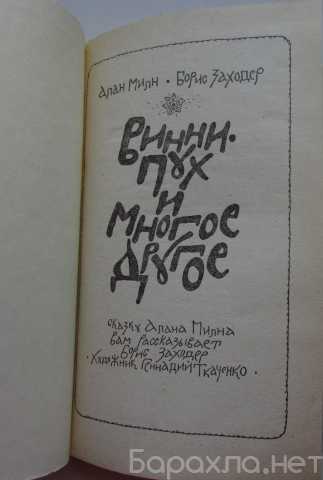 Алан Милн • Борис Заходер
Винни-
Пух
и
многое
другое
сказку Алана Милна
вам рассказывает
Борис Заходер
• Художник Геннадий Ткаченко •
Барахла.нет